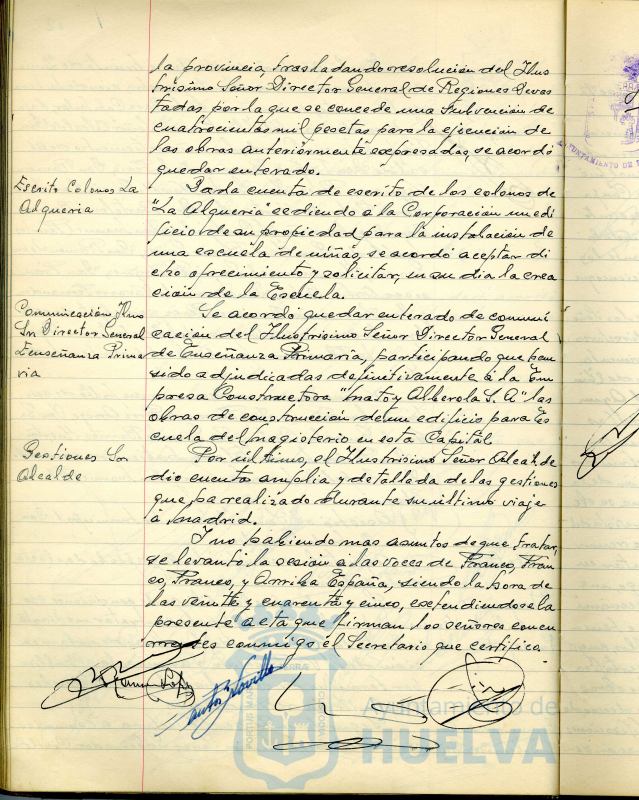 la provincia, trasladando resolución del Ilus
trísimo Señor Director General de Regiones Devas
tadas por la que se concede una subvención de
cuatrocientas mil pesetas para la ejecución de
las obras anteriormente expresadas, se acordó
quedar enterado.
Escrito Colonos La
Alqueria
Dada cuenta de escrito de los colonos de
"La Alqueria" cediendo á la Corporación un edi
ficio de su propiedad para la instalación de
una escuela de niñas, se acordó aceptar di
cho ofrecimiento y solicitar, en su dia la crea
ción de la Escuela.
Comunicación Ilmo
Sr Director General
Enseñanza Prima
ria
Se acordó quedar enterado de comuni
cación del Ilustrisimo Señor Director General
de Enseñanza Primaria, participando que han
sido adjudicadas definitivamente á la Em
presa Constructora "Mato y Alberola S.A" las
obras de construcción de un edificio para Es
cuela del Magisterio en esta Capital.
Gestiones Sr
Alcalde
Por último, el Ilustrisimo Señor Alcalde
dio cuenta amplia y detallada de las gestiones
que ha realizado durante su último viaje
á Madrid.
Y no habiendo mas asuntos de que tratar,
se levantó la sesión a las voces de Franco, Fran
co, Franco, y Arriba España, siendo la hora de
las veinte y cuarenta y cinco, extendiendose la
presente acta que firman los señores concu
rrentes conmigo el Secretario que certifico.
Ayuntamiento de
HUELVA